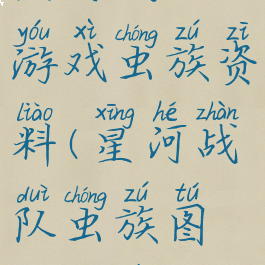 yóu xì chóng zú zī
游戏虫族资
liào xīng hé zhàn
料(星河战
duì chóng zú tú
队虫族图